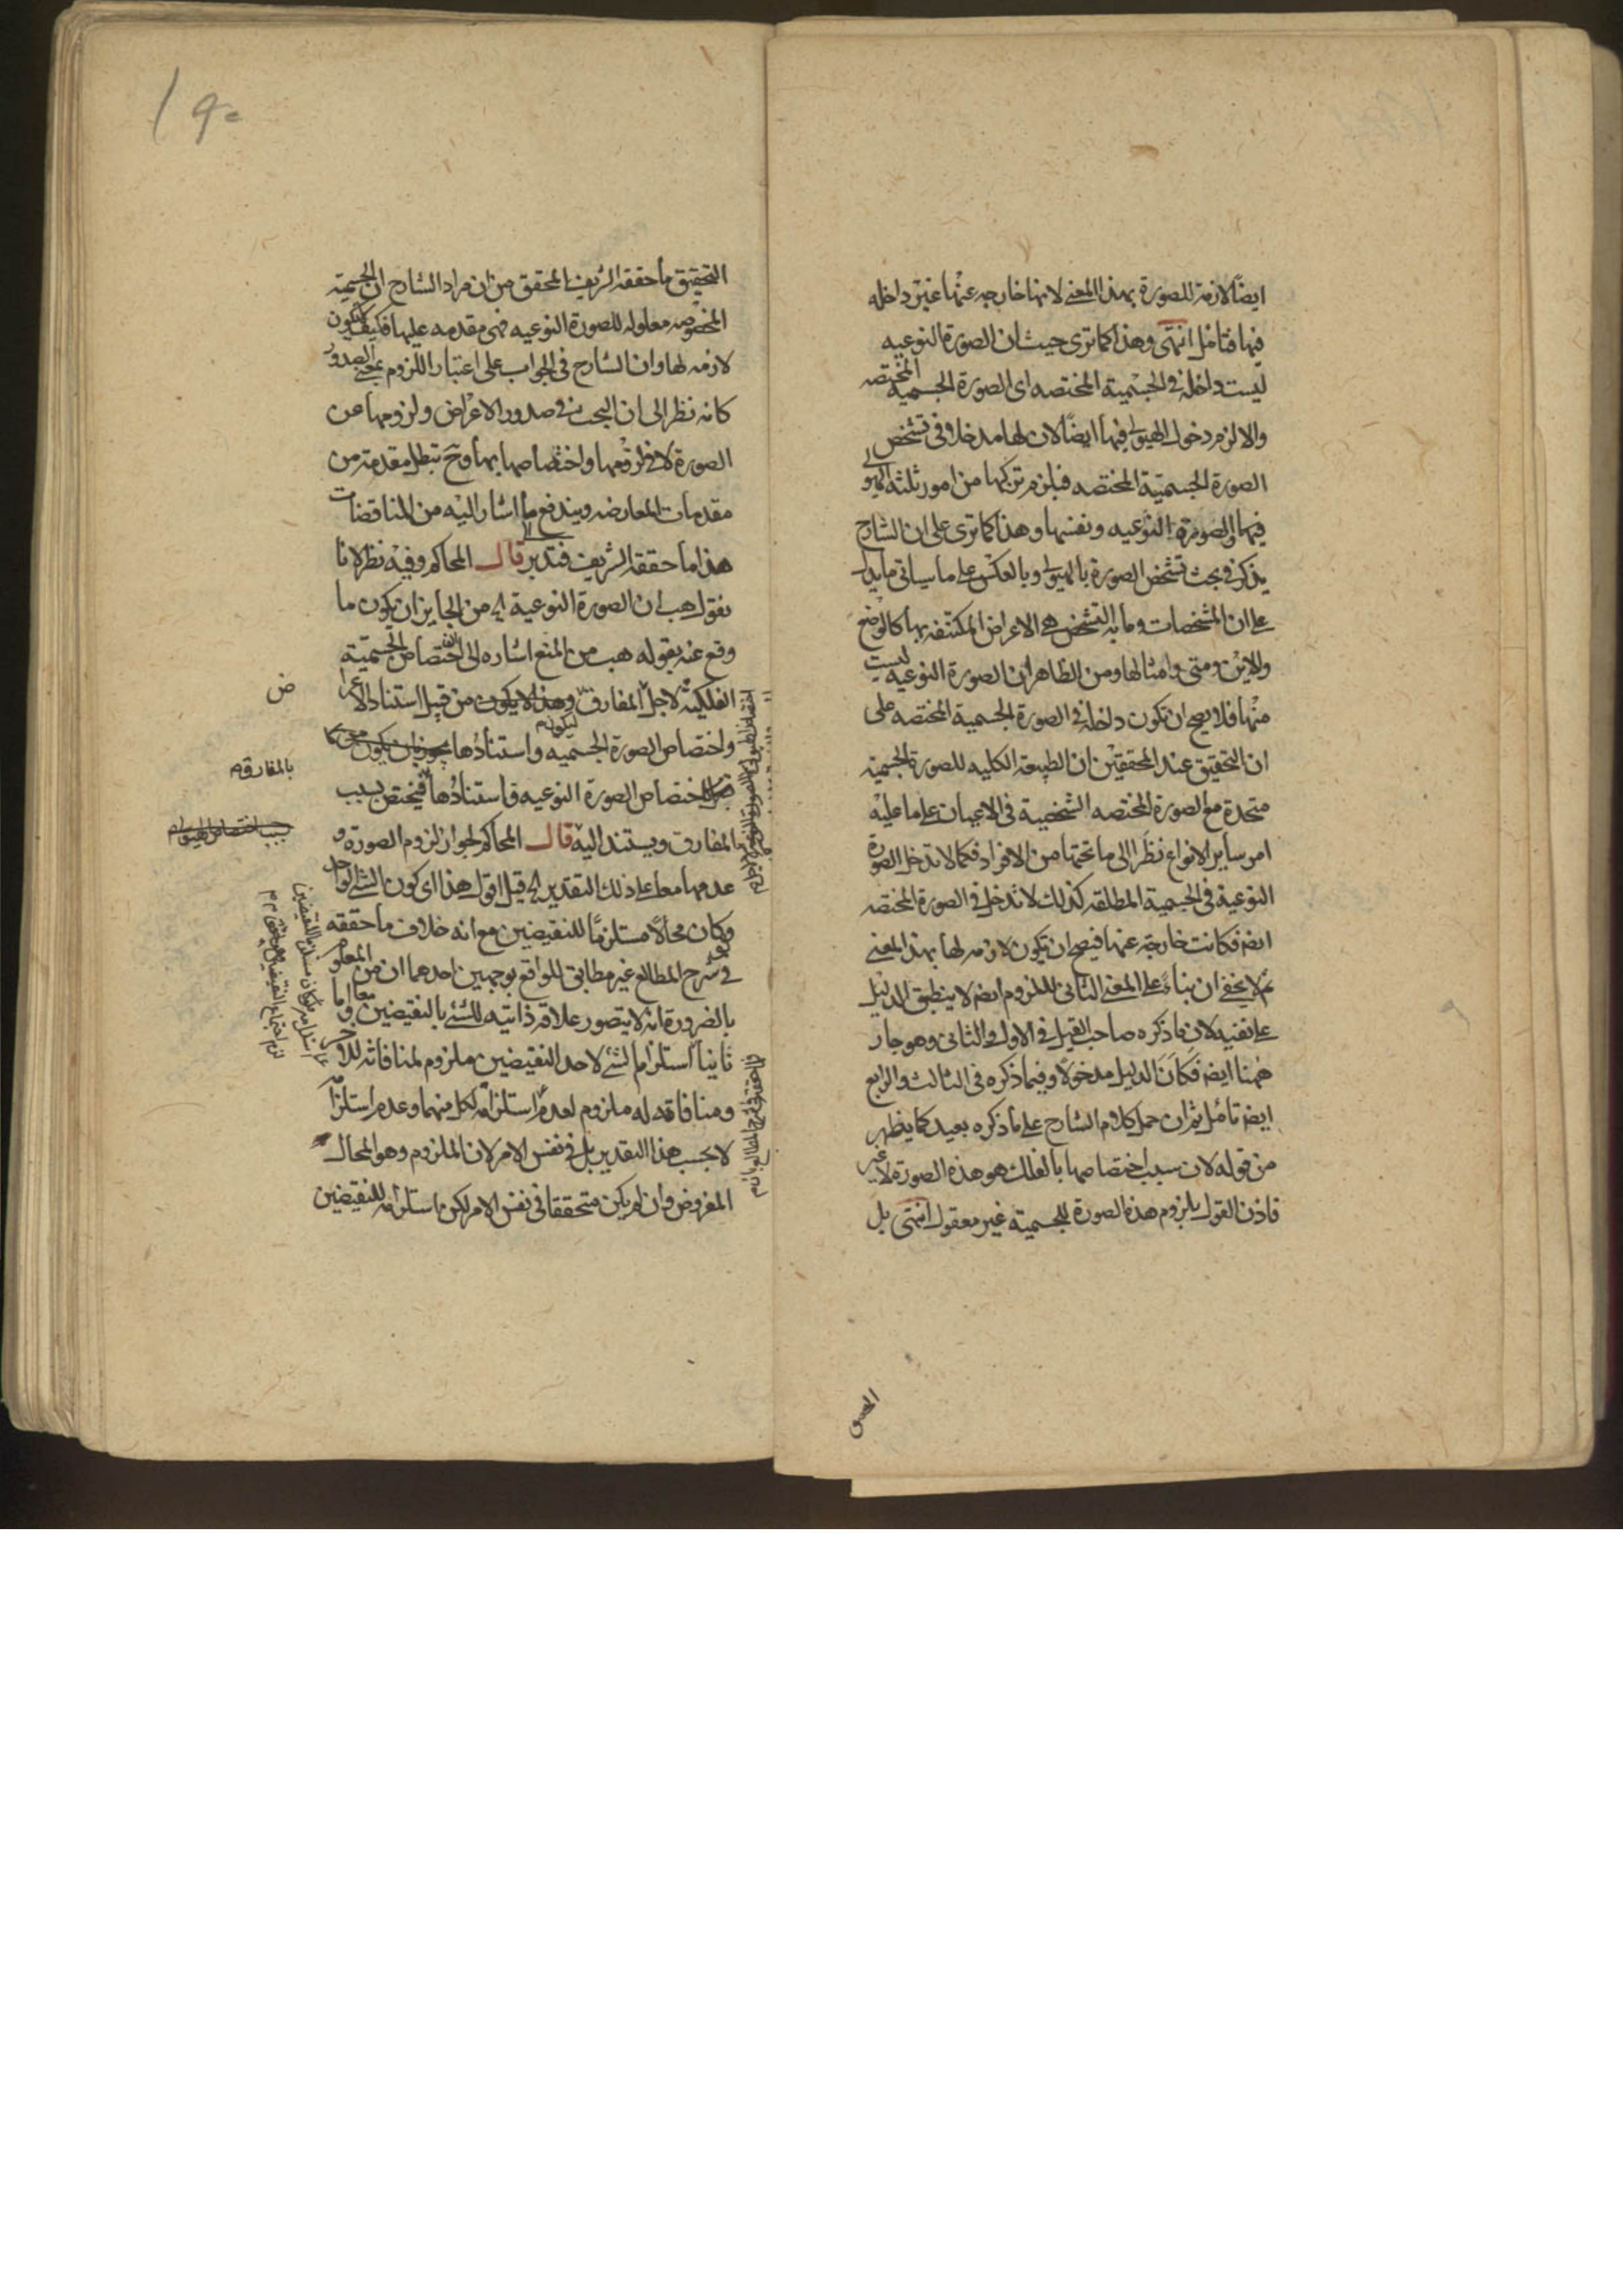 ايضًا لازمة للصورة بهذا المعنى لانها خارجه عنها غير داخله
فيها فتامل انتهى وهذا كما ترى حيث ان الصورة النوعيه
ليست داخلة في الجسمية المختصه اى الصورة الجسمية المختصه
والا لزم دخول الهيولى فيها ايضًا لان لها مدخلا فى تشخص
الصورة الجسميّة المختصه فيلزم تركبها من امور ثلثة الهيولى
فيها والصورة النوعيه ونفسها وهذا كما ترى على ان الشارح
يذكر في بحث تشخص الصورة بالهيولى وبالعكس على ما سياتى ما يدل
على ان المشخصات وما به التشخص هى الاعراض المكتنفه بها كالوضع
والاين ومتى وامثالها ومن الظاهر ان الصورة النوعيه ليست
منها فلا يصح ان تكون داخلة فى الصورة الجسمية المختصه على
ان التحقيق عند المحققين ان الطبيعه الكليه للصورة الجسمية
متحدة مع الصورة المختصه الشخصية فى الاعيان على ما عليه
امر ساير الانواع نظرًا الى ما تحتها من الافراد فكما لا تدخل الصورة
النوعية فى الجسمية المطلقه كذلك لا تدخل فى الصورة المختصه
ايضا فكانت خارجة عنها فيصح ان تكون لازمه لها بهذا المعنى
ثم لا يخفى ان بناءً على المعنى الثانى للملزوم ايضا لا ينطبق الدليل
على نفيه لان ما ذكره صاحب القيل فى الاول والثانى وهو جار
ههنا ايضا فكان الدليل مدخولا وفيما ذكره فى الثالث والرابع
ايضا تامل ثم ان حمل كلام الشارح على ما ذكره بعيد كما يظهر
من قوله لان سبب اختصاصها بالفلك هو هذه الصورة لا غير
فاذن القول بلزوم هذه الصورة للجسمية غير معقول انتهى بل
١٩٠
التحقيق ما حققه الشريف المحقق من ان مراد الشارح ان الجسمية
المخصوصه معلوله للصورة النوعيه فهى مقدمه عليها فكيف تكون
لازمه لها وان الشارح فى الجواب على اعتبار اللزوم بمعنى الصدور
كانه نظر الى ان البحث فى صدور الاعراض ولزومها عن
الصورة لا فى لزومها واختصاصها بها وح تبطل مقدمة من
مقدمات المعارضه ويندفع ما اشار اليه من المناقضات
هذا ما حققه الشريف فتدبر قال المحاكم وفيه نظر لانا
نقول هب ان الصورة النوعية الى من الجايز ان يكون ما
وقع عنه بقوله هب من المنع اشاره الى اختصاص الجسمية
الفلكية لاجل المفارق وهذا لا يكون من قبيل استناد الاعرا
ض
واختصاص الصورة الجسميه واستنادها يجوز ان يكون
بالمفارق م
اختصاص الصورة النوعيه واستنادها فيختص بسبب
سبب اختصاص الهيولى م
المفارق ويستند اليه قال المحاكم لجواز لزوم الصورة و
عدمها معا على ذلك التقدير الى قيل اقول هذا اى كون الشئ الواحد
وكان محالًا مستلزمًا للنقيضين مع انه خلاف ما حققه
فى شرح المطالع غير مطابق للواقع بوجهين احدهما ان من المعلوم
بالضرورة انه لا يتصور علاقه ذاتيه للشئ بالنقيضين معا واما
ثانيا استلزام الشئ لاحد النقيضين ملزوم لمنافاته للاخر
ومنافاته له ملزوم لعدم استلزامه لكل منهما وعدم استلزامه
لا بحسب هذا التقدير بل فى نفس الامر لان الملزوم وهو المحال
المفروض وان لم يكن متحققا فى نفس الامر لكن استلزامه للنقيضين